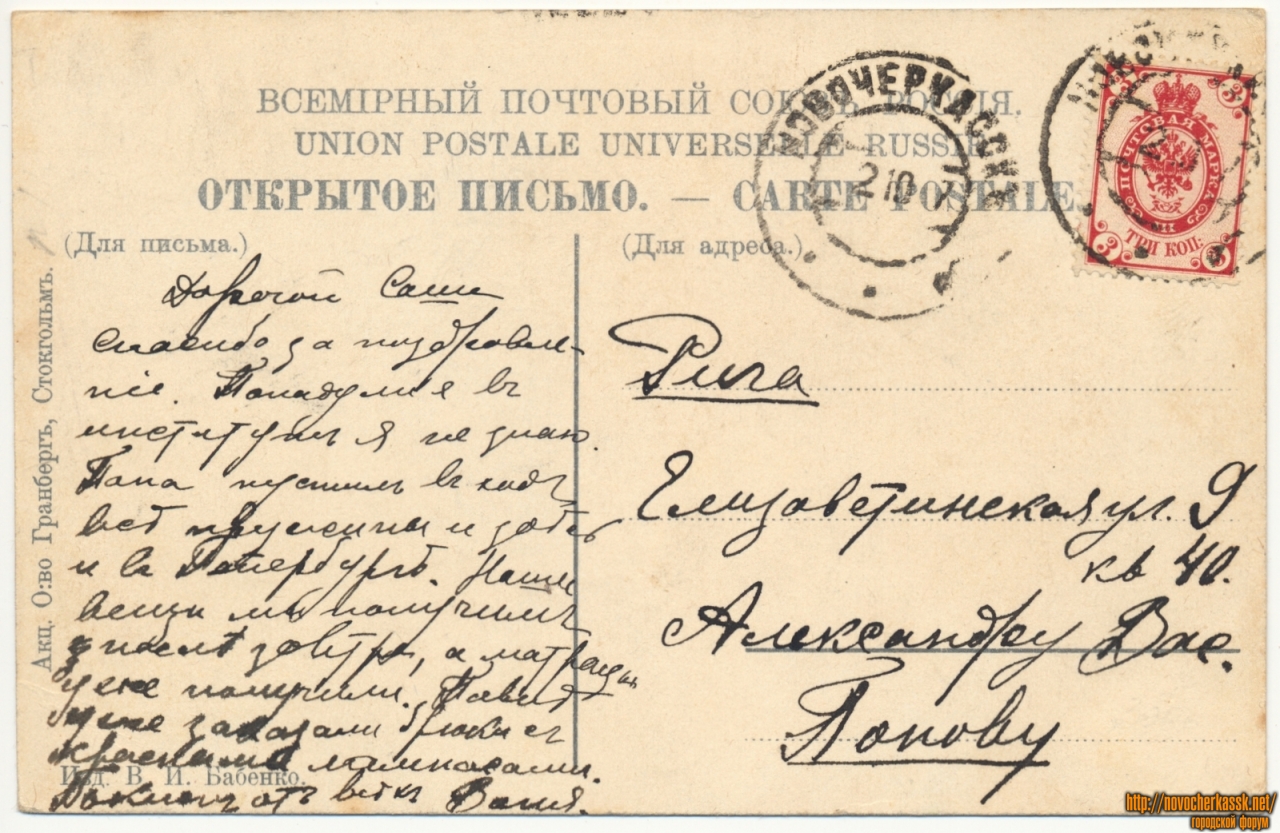 ВСЕМІРНЫЙ ПОЧТОВЫЙ СОЮЗЪ. РОССІЯ.
UNION POSTALE UNIVERSELLE RUSSIE
ОТКРЫТОЕ ПИСЬМО. — CARTE POSTALE.
НОВОЧЕРКАССКЪ
2 10
ПОЧТОВАЯ МАРКА
3
3
3
3
ТРИ КОП:
(Для письма.)
Дорогой Саша
спасибо за поздравле-
ніе. Попаду ли я въ
институтъ я не знаю.
Папа пустилъ въ ходъ
всѣ пружины и здѣсь
и въ Петербургѣ. Наши
вещи мы получимъ
послѣ завтра, а матрацы
уже получили.
уже заказали брюки съ
красными лампасами.
отъ всѣхъ Ваня.
(Для адреса.)
Рига
Елизаветинская ул. 9
кв 40.
Александру Вас.
Попову
Акц. О:во Гранбергъ, Стокгольмъ.
Изд. В. И. Бабенко.
http://novocherkassk.net/
городской форум